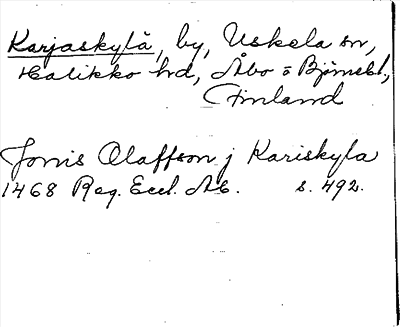 Karjaskylä, by, Uskela sn,
Halikko hd, Åbo o Björnebl.,
Finland
Jonis Olaffson j Kariskyla
1468 Reg. Eccl. Ab. s. 492.